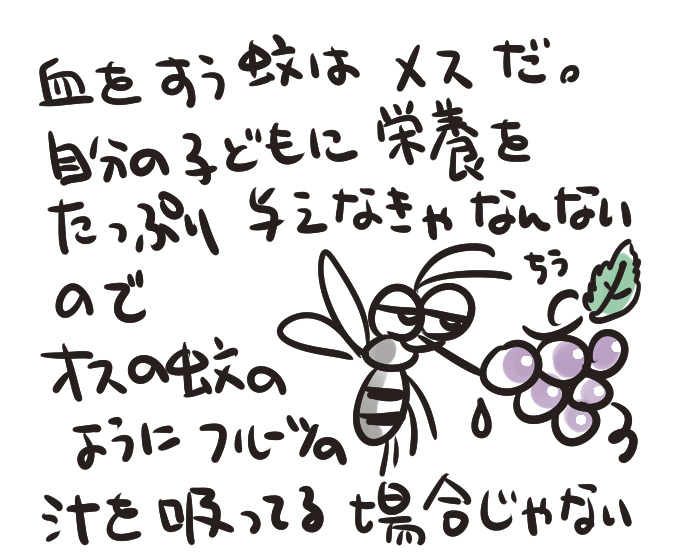 血をすう蚊はメスだ。
自分の子どもに栄養を
たっぷり与えなきゃなんない
ので
ちう
オスの蚊の
ようにフルーツの
汁を吸ってる場合じゃない